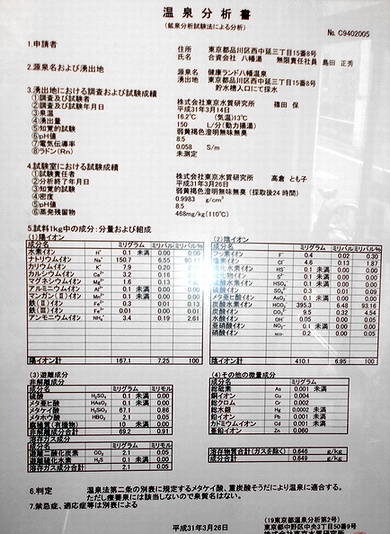 温泉分析書
(鉱泉分析試験法による分析)
No. C9402005
1.申請者
住所 東京都品川区西中延三丁目15番8号
氏名 合資会社 八幡湯 無限責任社員 島田 正秀
2.源泉名および湧出地
源泉名 健康ランド八幡温泉
湧出地 東京都品川区西中延三丁目15番8号
貯水槽入口にて採水
3.湧出地における調査および試験成績
①調査及び試験者 株式会社東京水質研究所 篠田 保
②調査及び試験年月日 平成31年3月14日
③泉温 16.2℃ (気温)13℃
④湧出量 150 L/分(動力揚湯)
⑤知覚的試験 弱黄褐色澄明無味無臭
⑥pH値 8.5
⑦電気伝導率 0.058 S/m
⑧ラドン(Rn) 未測定
4.試験室における試験成績
①試験責任者 株式会社東京水質研究所 高倉 とも子
②分析終了年月日 平成31年3月26日
③知覚的試験 弱黄褐色澄明無味無臭 (採取後24時間)
④密度 0.9983 g/cm³
⑤pH値 8.5
⑥蒸発残留物 468mg/kg(110℃)
5.試料1kg中の成分:分量および組成
(1)陽イオン
成分名 ミリグラム ミリバル ミリバル%
水素イオン H⁺ 0.1 未満 0.00 0.00
ナトリウムイオン Na⁺ 150.7 6.55
カリウムイオン K⁺ 7.9 0.20
カルシウムイオン Ca²⁺ 3.2 0.16
マグネシウムイオン Mg²⁺ 1.6 0.13
アルミニウムイオン Al³⁺ 0.1 未満 0.00
マンガン(Ⅱ)イオン Mn²⁺ 0.1 未満 0.00
鉄(Ⅱ)イオン Fe²⁺ 0.3 0.01
鉄(Ⅲ)イオン Fe³⁺ 0.01 0.00
アンモニウムイオン NH₄⁺ 3.4 0.19 2.61
陽イオン計 167.1 7.25 100
(2)陰イオン
成分名 ミリグラム ミリバル ミリバル%
フッ素イオン F⁻ 0.4 0.02 0.30
Cl⁻ 4.6 0.13 1.87
HS⁻ 0.1 未満 0.00 0.00
395.3 6.48 93.16
炭酸イオン CO₃²⁻ 9.5 0.32 4.54
水酸イオン OH⁻ 0.1 未満 0.00 0.00
陰イオン計 410.1 6.95 100
(3)遊離成分
非解離成分
成分名 ミリグラム ミリモル
硫酸 H₂SO₄ 0.1 未満 0.00
メタ亜ヒ酸 HAsO₂ 0.1 未満 0.00
メタケイ酸 H₂SiO₃ 67.1 0.86
メタホウ酸 HBO₂ 2.1 0.05
腐植質(有機物) 10 未満 0.00
非解離成分合計 69.2 0.91
溶存ガス成分
遊離二酸化炭素 CO₂ 2.1 0.05
遊離硫化水素 H₂S 0.1 未満 0.00
溶存ガス成分合計 2.1 0.05
(4)その他の微量成分
成分名 ミリグラム
総砒素 As 0.001 未満
銅イオン Cu 0.004
総クロム Cr
総水銀 Hg 0.0002 未満
鉛イオン Pb 0.001 未満
カドミウムイオン Cd 0.001 未満
亜鉛イオン Zn 0.060
溶存物質合計(ガスを除く) 0.646 g/kg
成分合計 0.649 g/kg
6.判定 温泉法第二条の別表に規定するメタケイ酸、重炭酸そうだにより温泉に適合する。
ただし療養泉には該当しないので泉質名はない。
7.禁忌症、適応症等は別表による
平成31年3月26日
(19東京都温泉分析第2号)
東京都中野区中央3丁目50番9号
株式会社東京水質研究所